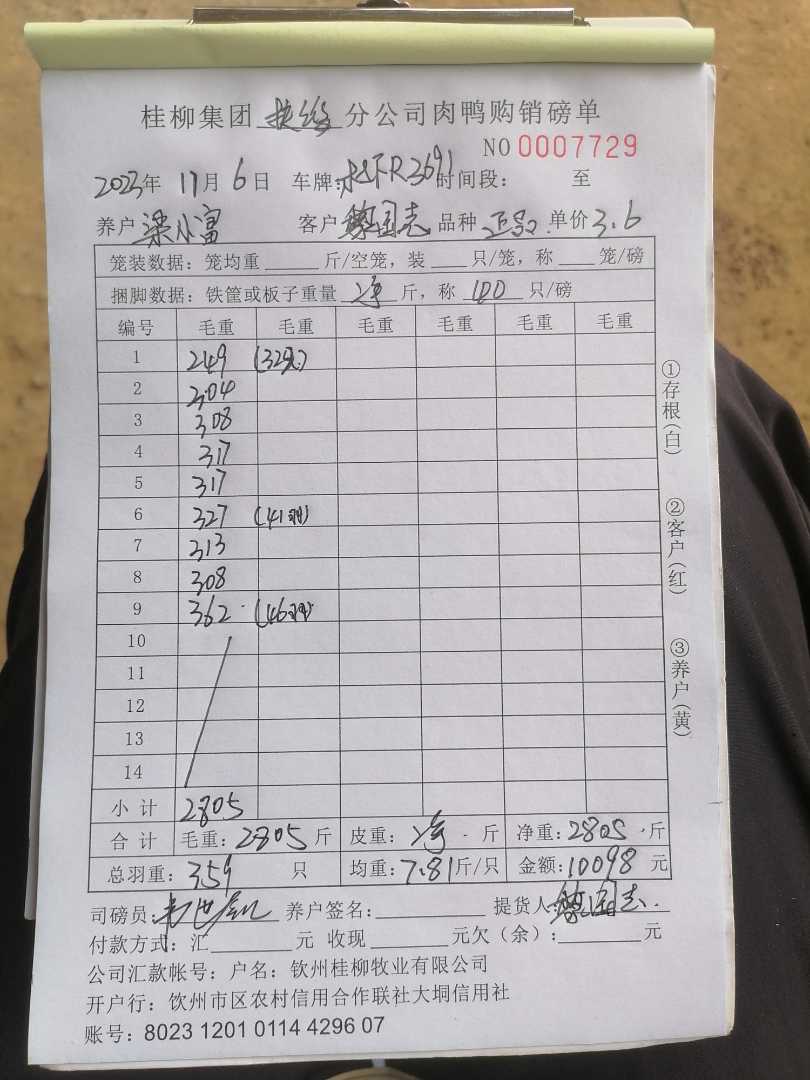 桂柳集团 扶绥 分公司肉鸭购销磅单
NO 0007729
2023年 11月 6日 车牌: R3691 时间段: 至
养户 梁小富 客户 黎国志 品种 单价 3.6
笼装数据: 笼均重 斤/空笼, 装 只/笼, 称 笼/磅
捆脚数据: 铁筐或板子重量 净 斤, 称 只/磅
编号 毛重 毛重 毛重 毛重 毛重 毛重
1 249
2 304
3 308
4 317
5 317
6 327 (41羽)
7 313
8 308
9 362 (46羽)
10
11
12
13
14
小计 2805
合计 毛重: 2805 斤 皮重: 净 斤 净重: 2805 斤
总羽重: 359 只 均重: 7.81 斤/只 金额: 10098 元
司磅员: 养户签名: 提货人: 黎国志
付款方式: 汇 元 收现 元欠(余): 元
公司汇款帐号: 户名: 钦州桂柳牧业有限公司
开户行: 饮州市区农村信用合作联社大垌信用社
账号: 8023 1201 0114 4296 07
①存根(白)
②客户(红)
③养户(黄)